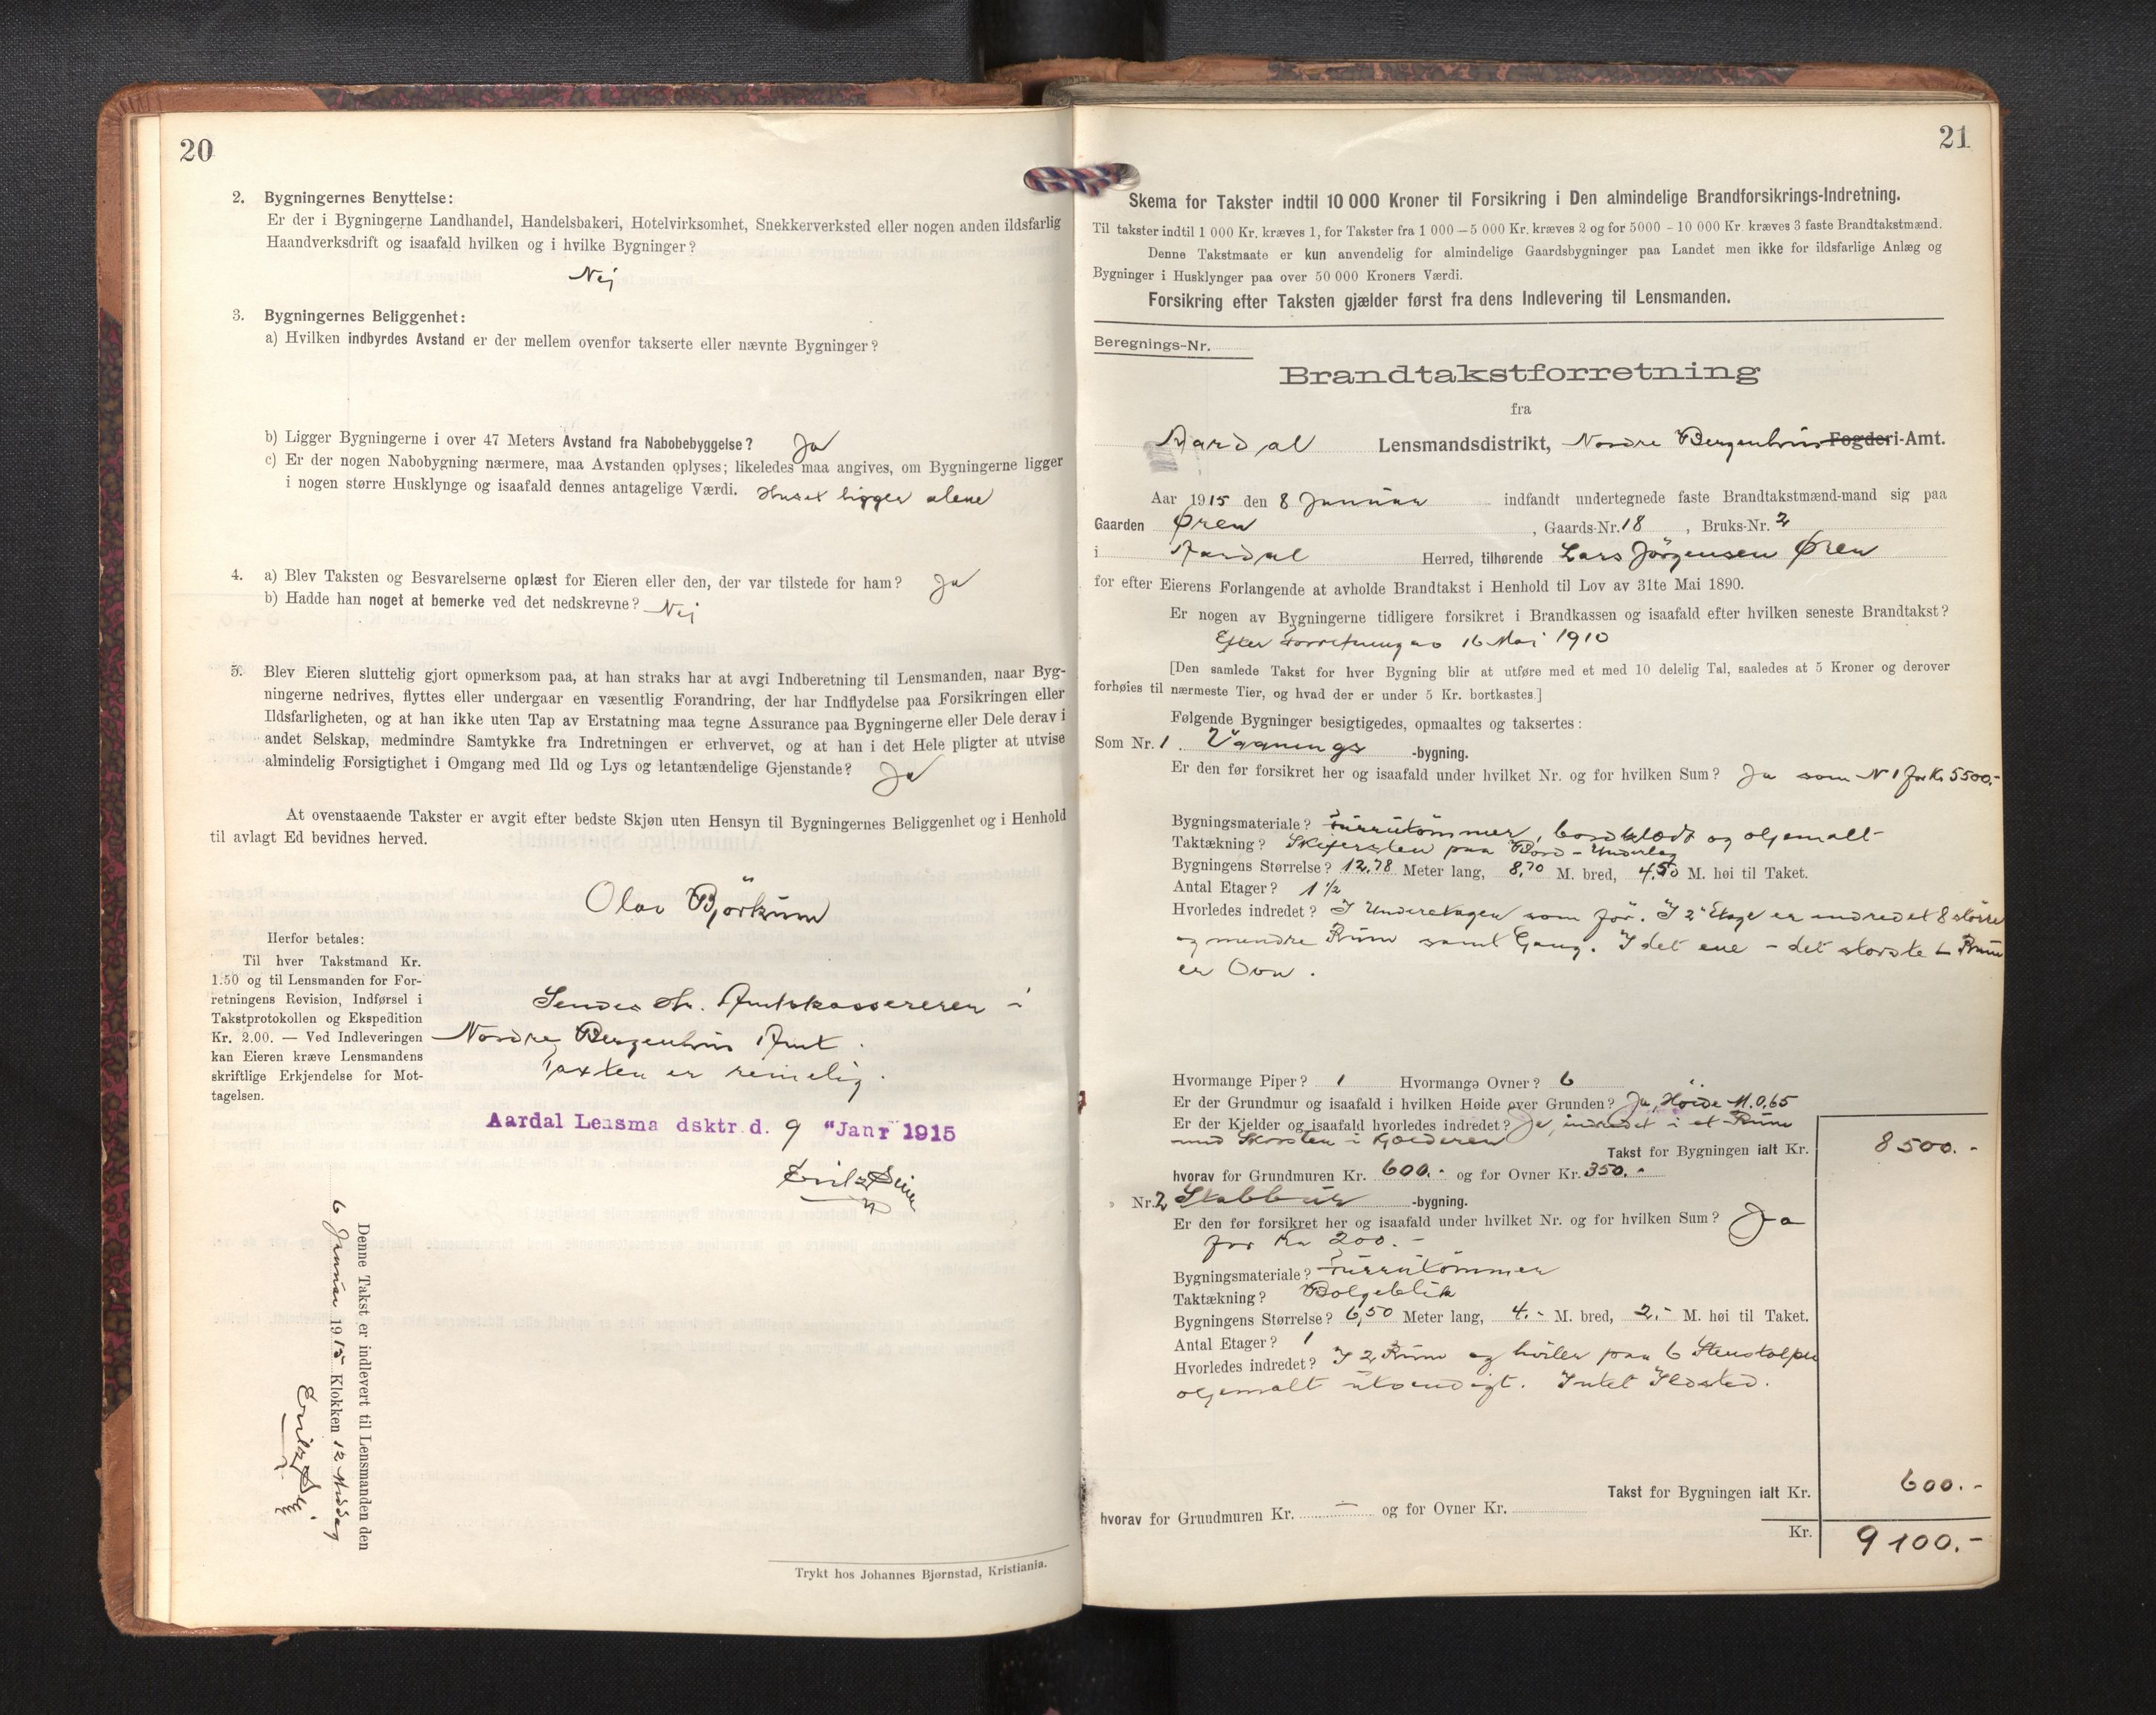 20
2. Bygningernes Benyttelse:
Er der i Bygningerne Landhandel, Handelsbakeri, Hotelvirksomhet, Snekkerverksted eller nogen anden ildsfarlig
Haandverksdrift og isaafald hvilken og i hvilke Bygninger?
Nej
3. Bygningernes Beliggenhet:
a) Hvilken indbyrdes Avstand er der mellem ovenfor takserte eller nævnte Bygninger?
b) Ligger Bygningerne i over 47 Meters Avstand fra Nabobebyggelse? Ja
c) Er der nogen Nabobygning nærmere, maa Avstanden oplyses; likeledes maa angives, om Bygningerne ligger
i nogen større Husklynge og isaafald dennes antagelige Værdi. Huset ligger alene
4. a) Blev Taksten og Besvarelserne oplæst for Eieren eller den, der var tilstede for ham? Ja
b) Hadde han noget at bemerke ved det nedskrevne? Nej
5. Blev Eieren sluttelig gjort opmerksom paa, at han straks har at avgi Indberetning til Lensmanden, naar Byg-
ningerne nedrives, flyttes eller undergaar en væsentlig Forandring, der har Indflydelse paa Forsikringen eller
Ildsfarligheten, og at han ikke uten Tap av Erstatning maa tegne Assurance paa Bygningerne eller Dele derav i
andet Selskap, medmindre Samtykke fra Indretningen er erhvervet, og at han i det Hele pligter at utvise
almindelig Forsigtighet i Omgang med Ild og Lys og letantændelige Gjenstande? Ja
At ovenstaaende Takster er avgit efter bedste Skjøn uten Hensyn til Bygningernes Beliggenhet og i Henhold
til avlagt Ed bevidnes herved.
Olav Björkum
Herfor betales:
Til hver Takstmand Kr.
1.50 og til Lensmanden for For-
retningens Revision, Indførsel i
Takstprotokollen og Ekspedition
Kr. 2.00. — Ved Indleveringen
kan Eieren kræve Lensmandens
skriftlige Erkjendelse for Mot-
tagelsen.
Sendes Hr. Amtskassereren i
Nordre Bergenhus Amt.
Taxten er rimelig.
Aardal Lensma dsktr. d. 9 "Janr 1915
Denne Takst er indlevert til Lensmanden den
6 Januar 1915 Klokken 12 Middag
Trykt hos Johannes Bjørnstad, Kristiania.
21
Skema for Takster indtil 10 000 Kroner til Forsikring i Den almindelige Brandforsikrings-Indretning.
Til takster indtil 1 000 Kr. kræves 1, for Takster fra 1 000—5 000 Kr. kræves 2 og for 5000 - 10 000 Kr kræves 3 faste Brandtakstmænd.
Denne Takstmaate er kun anvendelig for almindelige Gaardsbygninger paa Landet men ikke for ildsfarlige Anlæg og
Bygninger i Husklynger paa over 50 000 Kroners Værdi.
Forsikring efter Taksten gjælder først fra dens Indlevering til Lensmanden.
Beregnings-Nr.
Brandtakstforretning
fra
Aardal Lensmandsdistrikt, Nordre Bergenhus Fogderi-Amt.
Aar 1915 den 8 Januar indfandt undertegnede faste Brandtakstmænd-mand sig paa
Gaarden Øren, Gaards-Nr. 18, Bruks-Nr. 2
i Aardal Herred, tilhørende Lars Jörgensen Øren
for efter Eierens Forlangende at avholde Brandtakst i Henhold til Lov av 31te Mai 1890.
Er nogen av Bygningerne tidligere forsikret i Brandkassen og isaafald efter hvilken seneste Brandtakst?
Efter Forretning av 16 Mai 1910
[Den samlede Takst for hver Bygning blir at utføre med et med 10 delelig Tal, saaledes at 5 Kroner og derover
forhøies til nærmeste Tier, og hvad der er under 5 Kr. bortkastes.]
Følgende Bygninger besigtigedes, opmaaltes og taksertes:
Som Nr. 1 Vaanings -bygning.
Er den før forsikret her og isaafald under hvilket Nr. og for hvilken Sum? Ja som N 1 for Kr 5500.-
Bygningsmateriale? Furrutömmer, bordklædt og oljemalt
Taktækning? Skifersten paa Bord-Underlag
Bygningens Størrelse? 12,78 Meter lang, 8,70 M. bred, 4,50 M. høi til Taket.
Antal Etager? 1 1/2
Hvorledes indredet? I Underetagen som för. I 2' Etage er indredet 8 större
og mindre Rum samt Gang. I det ene - det störste - Rum
er Ovn.
Hvormange Piper? 1 Hvormange Ovner? 6
Er der Grundmur og isaafald i hvilken Høide over Grunden? Ja, Höide M. 0,65
Er der Kjelder og isaafald hvorledes indredet? Ja, indredet i et Rum
med Skorsten i Kjælderen
Takst for Bygningen ialt Kr. 8500.-
hvorav for Grundmuren Kr. 600.- og for Ovner Kr. 350.-
Nr. 2 Stabbur -bygning.
Er den før forsikret her og isaafald under hvilket Nr. og for hvilken Sum? Ja
for Kr 200.-
Bygningsmateriale? Furrutömmer
Taktækning? Bolgeblik
Bygningens Størrelse? 6,50 Meter lang, 4.- M. bred, 2,- M. høi til Taket.
Antal Etager? 1
Hvorledes indredet? I 2 Rum og hviler paa 6 Stenstolper
oljemalt utvendigt. Intet Ildsted.
Takst for Bygningen ialt Kr. 600.-
hvorav for Grundmuren Kr. — og for Ovner Kr.
Kr. 9100.-